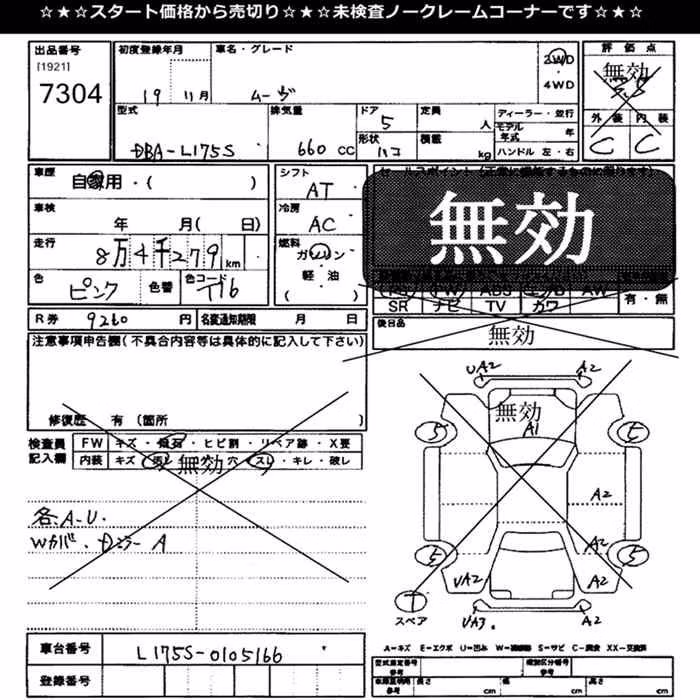 ☆★☆スタート価格から売切り☆★☆未検査ノークレームコーナーです☆★☆
出品番号
[1921]
7304
初度登録年月
19 11月
車名・グレード
ムーヴ
2WD
4WD
評価点
無効
3.5
外装 内装
C C
型式
DBA-L175S
排気量
660 cc
ドア
5
形状
ハコ
定員
人
積載
kg
ディーラー・並行
モデル年式 年
ハンドル 左・右
車歴
自家用・( )
車検
年 月( 日)
走行
8万4千279 km
色
ピンク
色替
色コード
T16
シフト
AT
冷房
AC
燃料
ガソリン
軽・油
( )
無効
SR ナビ TV カワ
有・無
R券 9260 円
名変通知期限 月 日
後日品
無効
注意事項申告欄(不具合内容等は具体的に記入して下さい)
修復歴 有 (箇所 )
検査員
記入欄
FW キズ・飛石・ヒビ割・リペア跡・X要
内装 キズ 無効 穴 スレ・キレ・破レ
各A-U.
UA2 A2
無効
A1
5 5
A2
5 5
UA2 A2
T
スペア
UA3. A2
A=キズ E=エクボ U=凹み
車台番号
L175S-0105166
登録番号
型式指定番号
参考
類別区分番号
参考
長さ cm
幅 cm
高さ cm